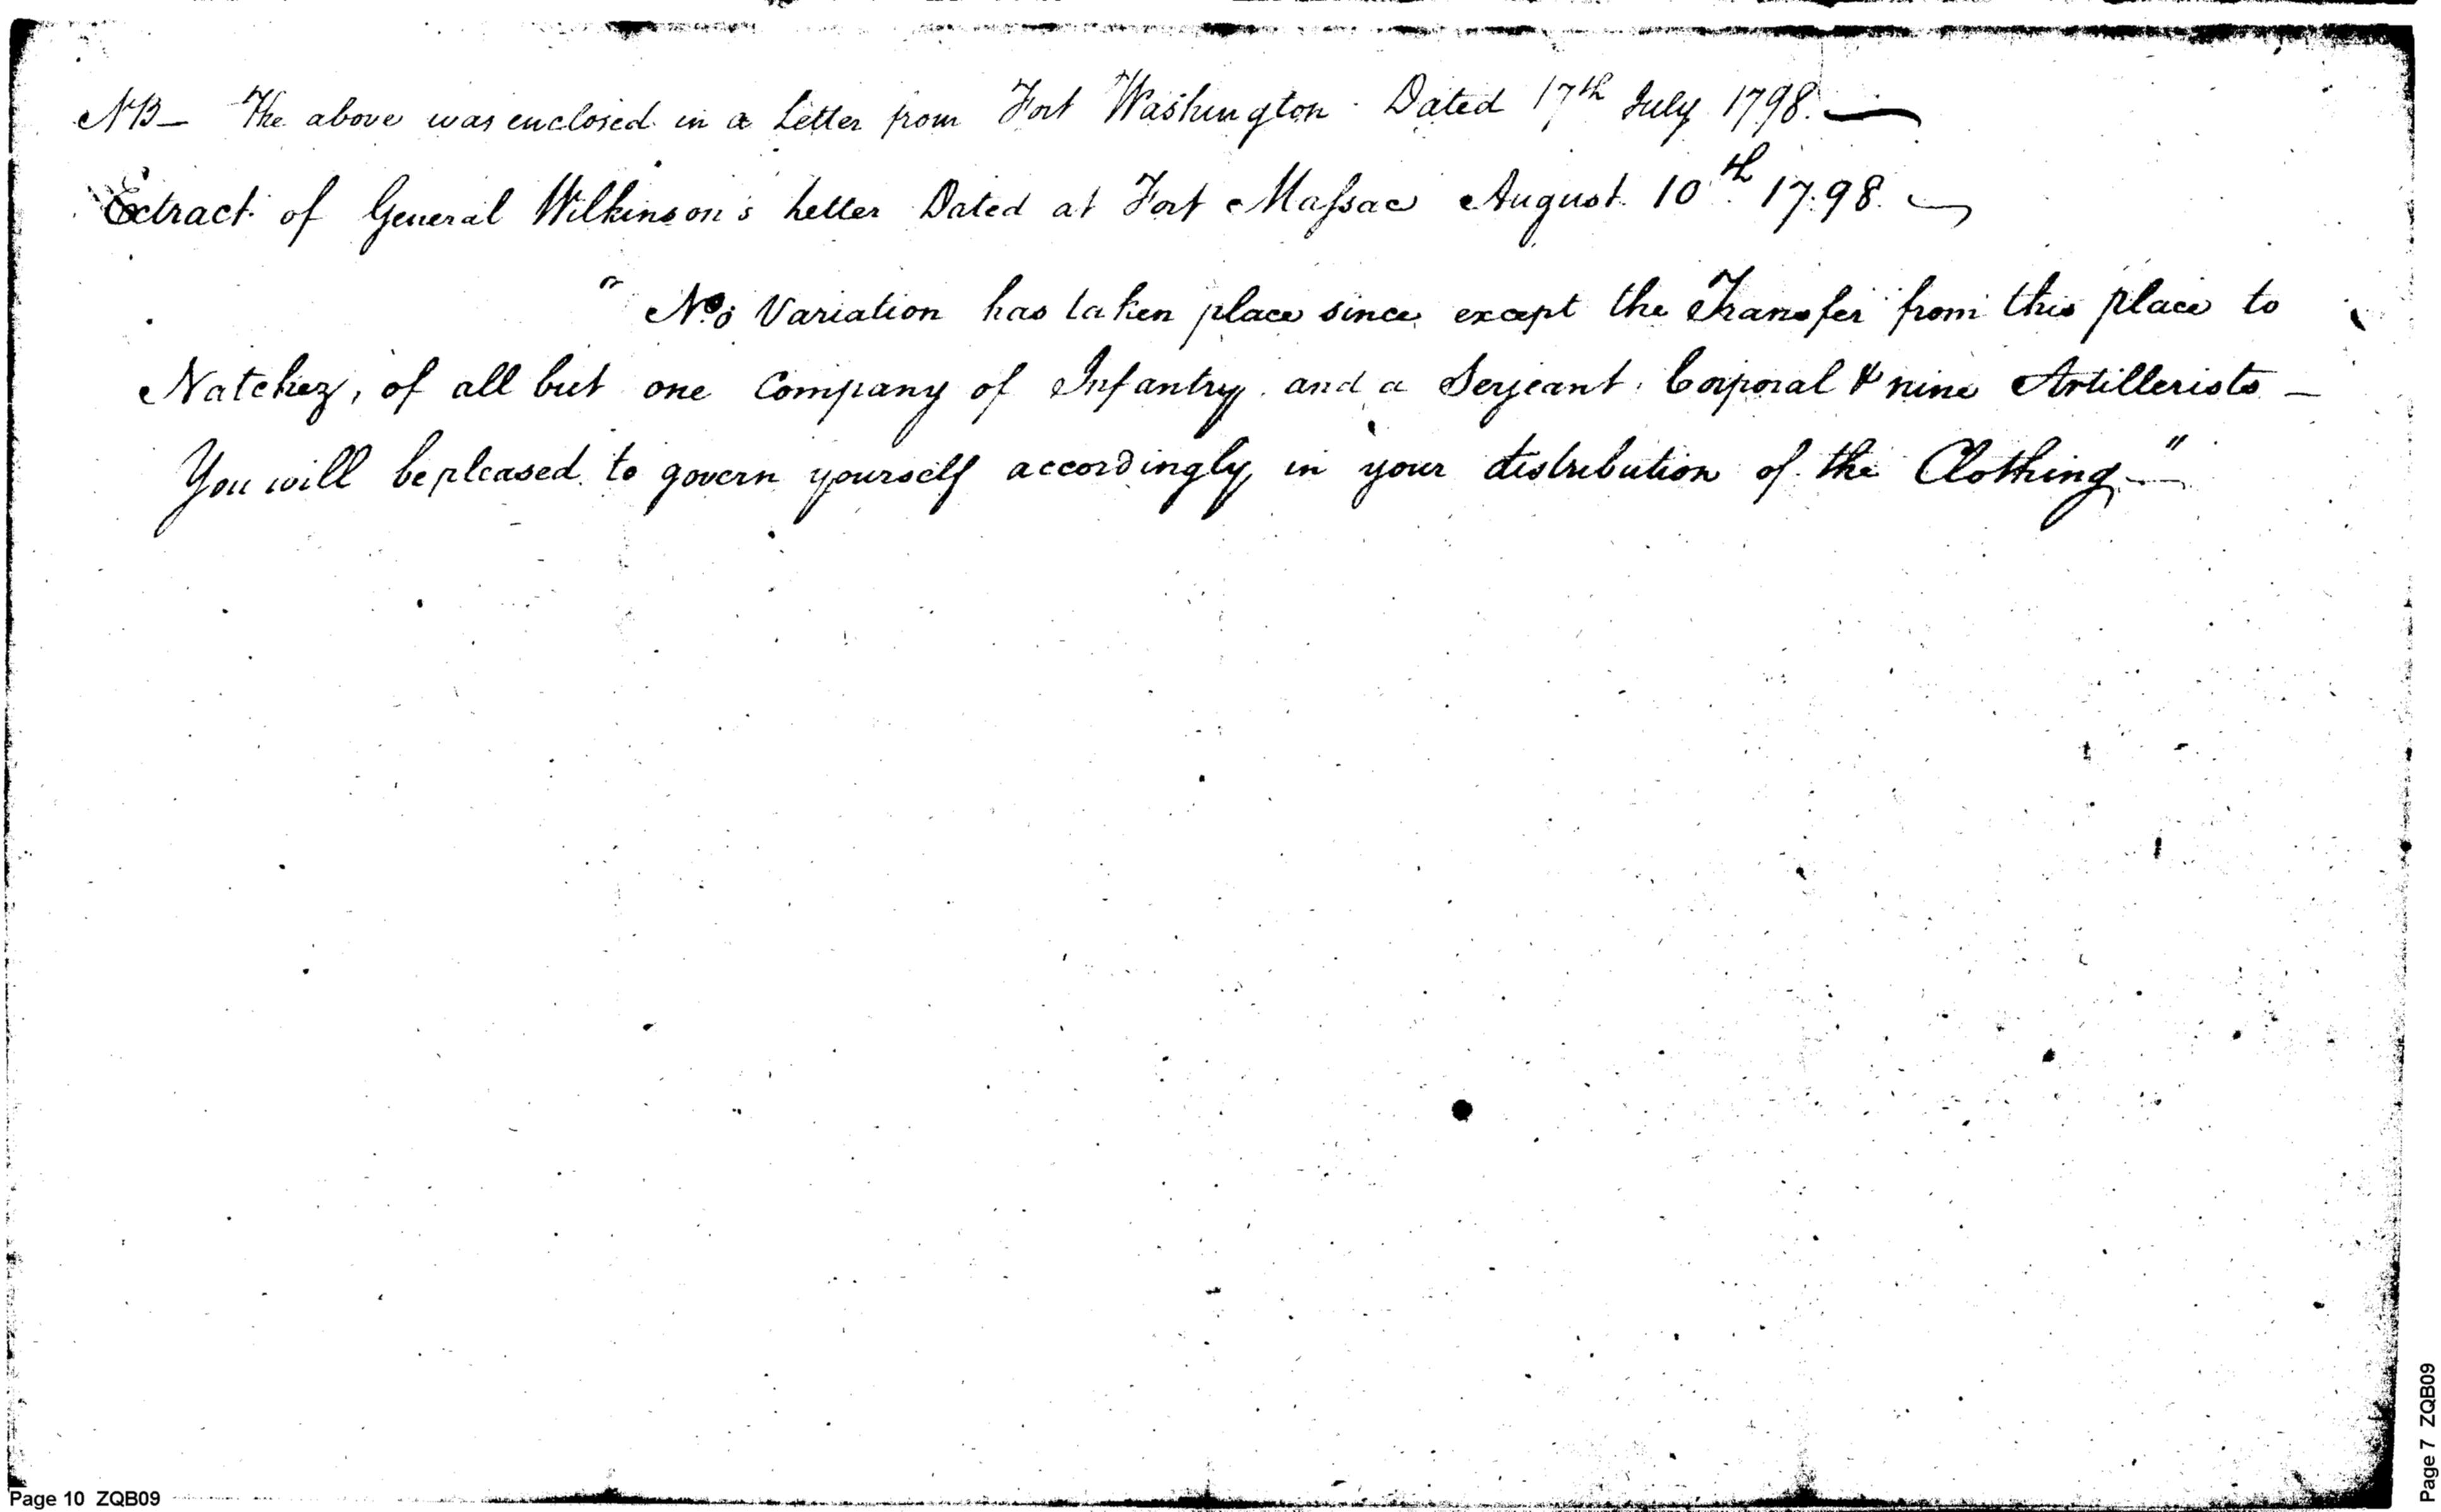 NB— The above was enclosed in a Letter from Fort Washington Dated 17th July 1798.—
Extract of General Wilkinson's Letter Dated at Fort Massac August 10th 1798.—
" No Variation has taken place since except the Transfer from this place to
Natchez, of all but one Company of Infantry and a Serjeant, Corporal & nine Artillerists —
You will be pleased to govern yourself accordingly in your distribution of the Clothing—"
Page 10 ZQB09
Page 7 ZQB09